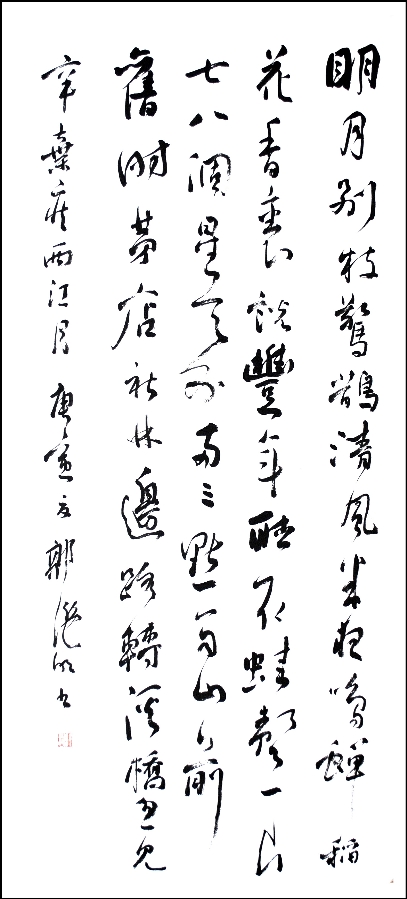 明月別枝驚鵲清風半夜鳴蟬稻
花香裏說豐年聽取蛙聲一片
七八個星天外兩三點雨山前
舊時茅店社林邊路轉溪橋忽見
辛棄疾西江月 庚寅 郭